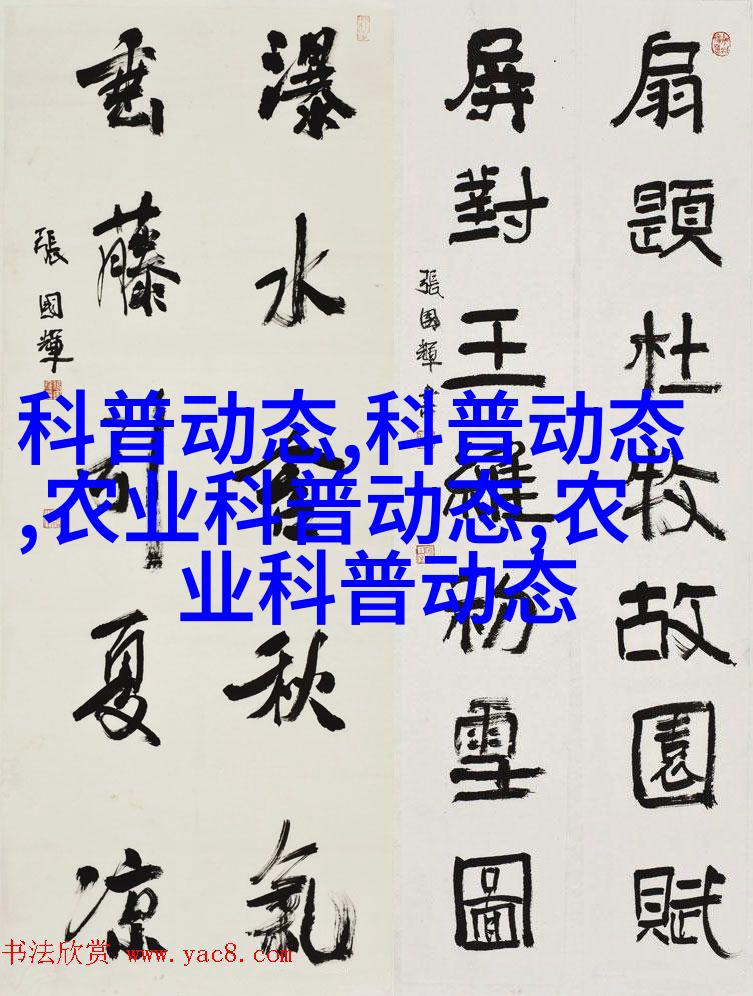 扇題杜牧故園賦
屏對王維初雪圖
張國輝
瀑水含秋氣
垂藤引夏凉
張國輝
科普动态,科普动态
,农业科普动态,农
业科普动态
书法欣赏 www.yac8.com